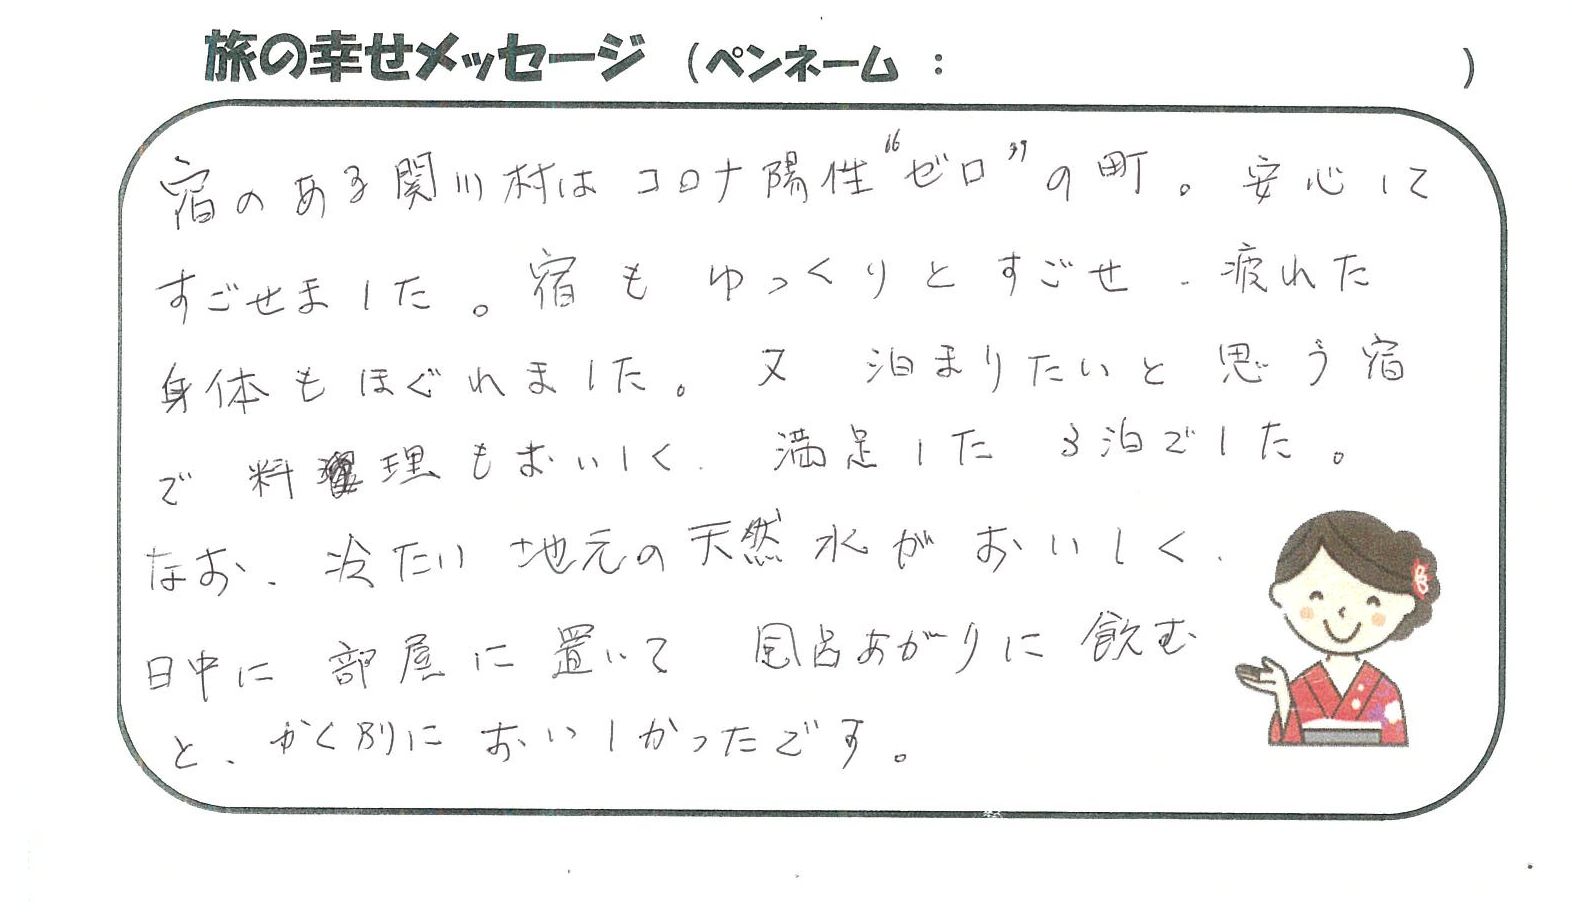 旅の幸せメッセージ (ペンネーム : )
宿のある関川村はコロナ陽性“ゼロ”の町。安心して
すごせました。宿もゆっくりとすごせ、疲れた
身体もほぐれました。又 泊まりたいと思う宿
で 料理もおいしく、満足した 3泊でした。
なお、冷たい 地元の天然水がおいしく、
日中に 部屋に置いて 風呂あがりに飲む
と、かく別に おいしかったです。